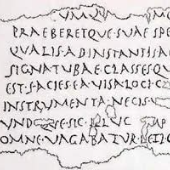 UMQU M
PRAEBERETQUE·SUAE SPE
QUALIS·AD INSTANTIS A
SIGNA TUBAE·CLASSESQ
EST·FACIES·EA VISA LOCI·C
INSTRUMENTA·NECIS·V
UNDIQUE·SIC·ILLUC
OMNE·VAGABATUR·LETI